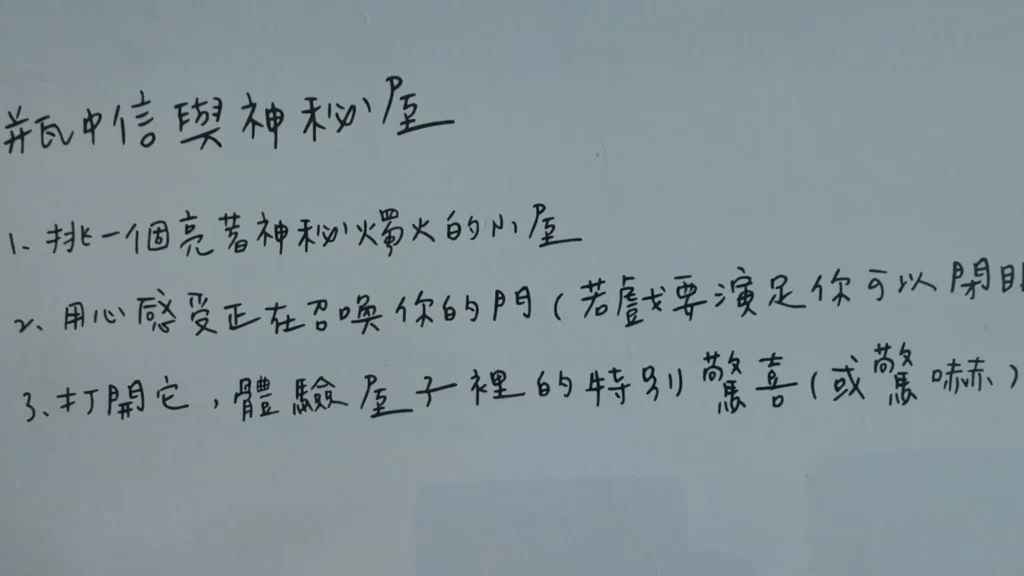 瓶中信與神秘屋
1. 挑一個亮著神秘燭火的小屋
2. 用心感受正在召喚你的門(若戲要演足你可以閉眼
3. 打開它,體驗屋子裡的特別驚喜(或驚嚇)